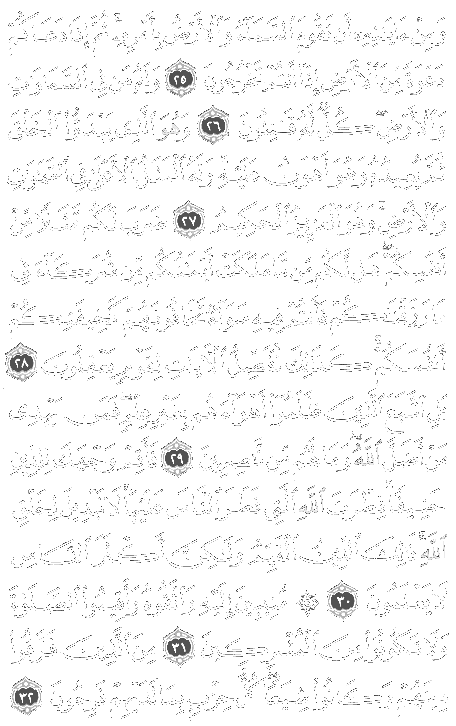 وَمِنْ ءَايَٰتِهِۦٓ أَن تَقُومَ ٱلسَّمَآءُ وَٱلْأَرْضُ بِأَمْرِهِۦ ۚ ثُمَّ إِذَا دَعَاكُمْ
دَعْوَةً مِّنَ ٱلْأَرْضِ إِذَآ أَنتُمْ تَخْرُجُونَ ٢٥ وَلَهُۥ مَن فِى ٱلسَّمَٰوَٰتِ
وَٱلْأَرْضِ ۖ كُلٌّ لَّهُۥ قَٰنِتُونَ ٢٦ وَهُوَ ٱلَّذِى يَبْدَؤُا۟ ٱلْخَلْقَ
ثُمَّ يُعِيدُهُۥ وَهُوَ أَهْوَنُ عَلَيْهِ ۚ وَلَهُ ٱلْمَثَلُ ٱلْأَعْلَىٰ فِى ٱلسَّمَٰوَٰتِ
وَٱلْأَرْضِ ۚ وَهُوَ ٱلْعَزِيزُ ٱلْحَكِيمُ ٢٧ ضَرَبَ لَكُم مَّثَلًا مِّنْ
أَنفُسِكُمْ ۖ هَل لَّكُم مِّن مَّا مَلَكَتْ أَيْمَٰنُكُم مِّن شُرَكَآءَ فِى
مَا رَزَقْنَٰكُمْ فَأَنتُمْ فِيهِ سَوَآءٌ تَخَافُونَهُمْ كَخِيفَتِكُمْ
أَنفُسَكُمْ ۚ كَذَٰلِكَ نُفَصِّلُ ٱلْءَايَٰتِ لِقَوْمٍ يَعْقِلُونَ ٢٨
بَلِ ٱتَّبَعَ ٱلَّذِينَ ظَلَمُوٓا۟ أَهْوَآءَهُم بِغَيْرِ عِلْمٍ ۖ فَمَن يَهْدِى
مَنْ أَضَلَّ ٱللَّهُ ۖ وَمَا لَهُم مِّن نَّٰصِرِينَ ٢٩ فَأَقِمْ وَجْهَكَ لِلدِّينِ
حَنِيفًا ۚ فِطْرَتَ ٱللَّهِ ٱلَّتِى فَطَرَ ٱلنَّاسَ عَلَيْهَا ۚ لَا تَبْدِيلَ لِخَلْقِ
ٱللَّهِ ۚ ذَٰلِكَ ٱلدِّينُ ٱلْقَيِّمُ وَلَٰكِنَّ أَكْثَرَ ٱلنَّاسِ
لَا يَعْلَمُونَ ٣٠ ۞ مُنِيبِينَ إِلَيْهِ وَٱتَّقُوهُ وَأَقِيمُوا۟ ٱلصَّلَوٰةَ
وَلَا تَكُونُوا۟ مِنَ ٱلْمُشْرِكِينَ ٣١ مِنَ ٱلَّذِينَ فَرَّقُوا۟
دِينَهُمْ وَكَانُوا۟ شِيَعًا ۖ كُلُّ حِزْبٍۭ بِمَا لَدَيْهِمْ فَرِحُونَ ٣٢